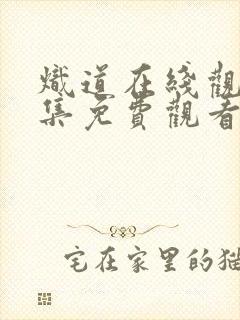 熾道在綫觀
集免費觀看
宅在家里的猫